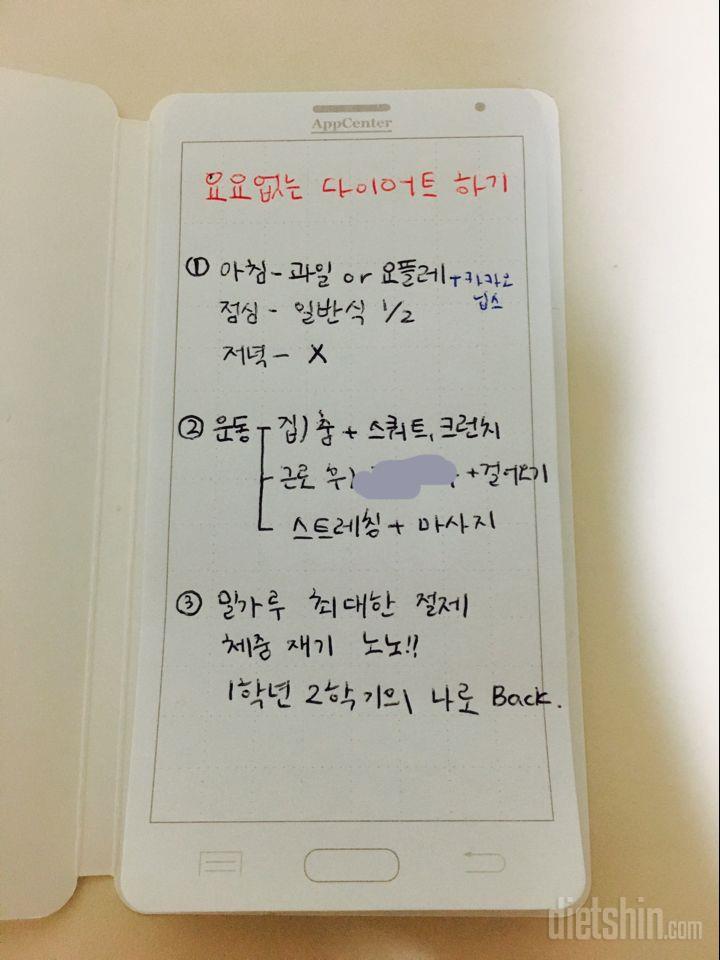 AppCenter
요요없는 다이어트 하기
① 아침 - 과일 or 요플레 + 카카오
닙스
점심 - 일반식 1/2
저녁 - X
② 운동 집) 춤 + 스쿼트, 크런치
근로 후) + 걸어오기
스트레칭 + 마사지
③ 밀가루 최대한 절제
체중 재기 노노!!
1학년 2학기의 나로 Back.
dietshin.com